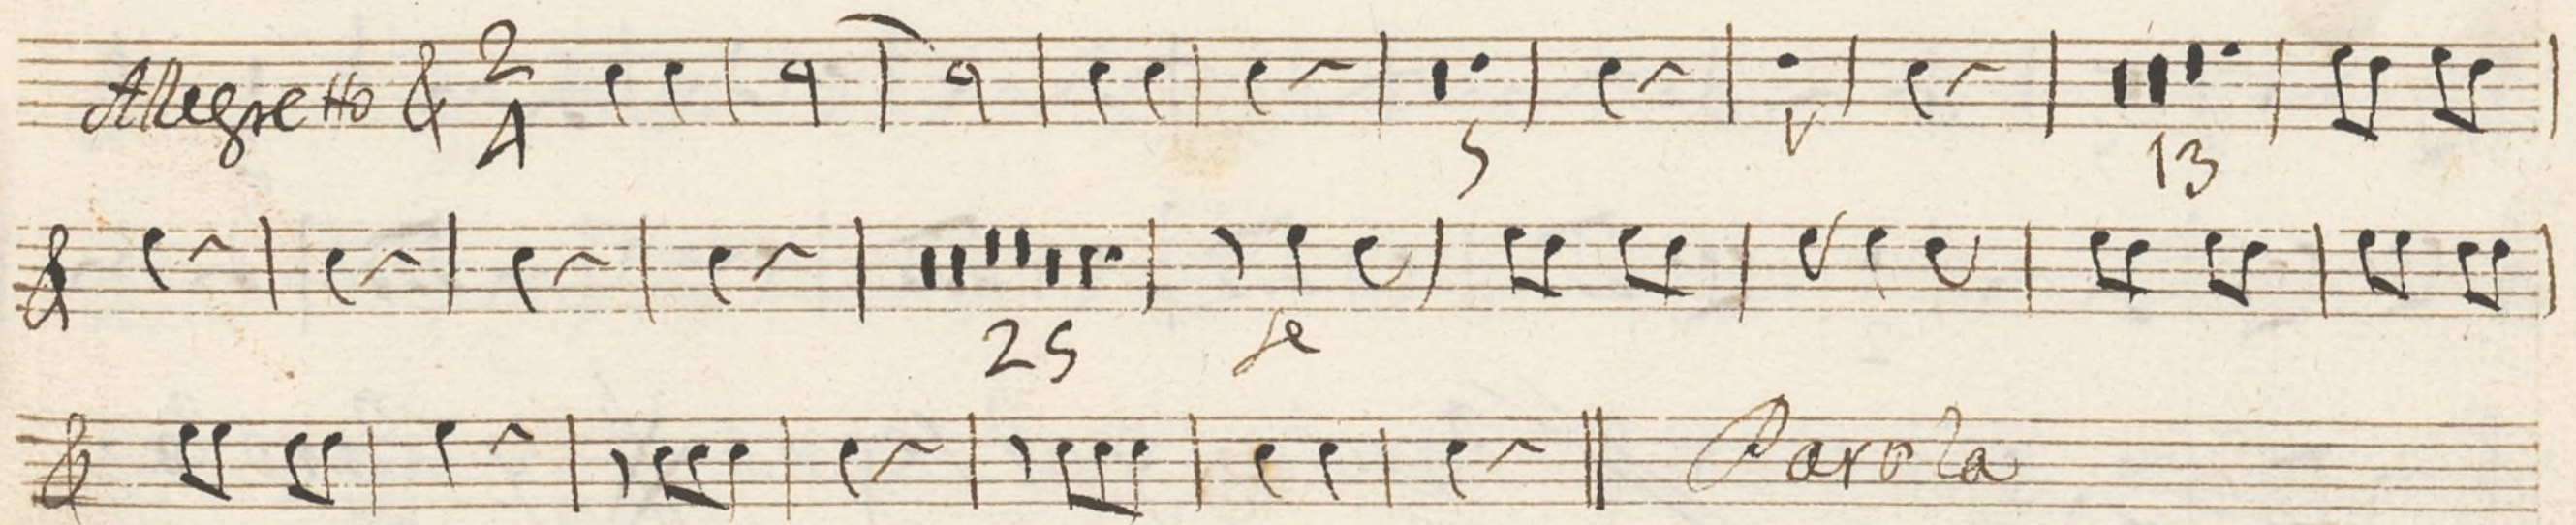 Allegretto 2/4
5 1 13
25 fe
Parola